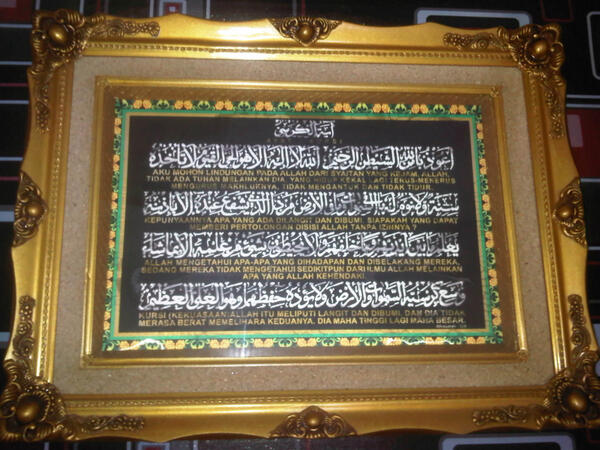 آية الكرسي
أعوذ بالله من الشيطن الرجيم الله لا إله إلا هو الحي القيوم لا تأخذه
AKU MOHON LINDUNGAN PADA ALLAH DARI SYAITAN YANG KEJAM. ALLAH,
TIDAK ADA TUHAN MELAINKAN DIA, YANG HIDUP KEKAL LAGI TERUS-MENERUS
MENGURUS MAKHLUKNYA, TIDAK MENGANTUK DAN TIDAK TIDUR.
سنة ولا نوم له ما في السموات وما في الأرض من ذا الذي يشفع عنده إلا بإذنه
KEPUNYAANNYA APA YANG ADA DILANGIT DAN DIBUMI. SIAPAKAH YANG DAPAT
MEMBERI PERTOLONGAN DISISI ALLAH TANPA IZINNYA ?
يعلم ما بين أيديهم وما خلفهم ولا يحيطون بشيء من علمه إلا بما شاء
ALLAH MENGETAHUI APA-APA YANG DIHADAPAN DAN DISELAKANG MEREKA,
SEDANG MEREKA TIDAK MENGETAHUI SEDIKITPUN DARI ILMU ALLAH MELAINKAN
APA YANG ALLAH KEHENDAKI.
وسع كرسيه السموات والأرض ولا يؤده حفظهما وهو العلي العظيم
KURSI (KEKUASAAN) ALLAH ITU MELIPUTI LANGIT DAN DIBUMI, DAN DIA TIDAK
MERASA BERAT MEMELIHARA KEDUANYA, DIA MAHA TINGGI LAGI MAHA BESAR.